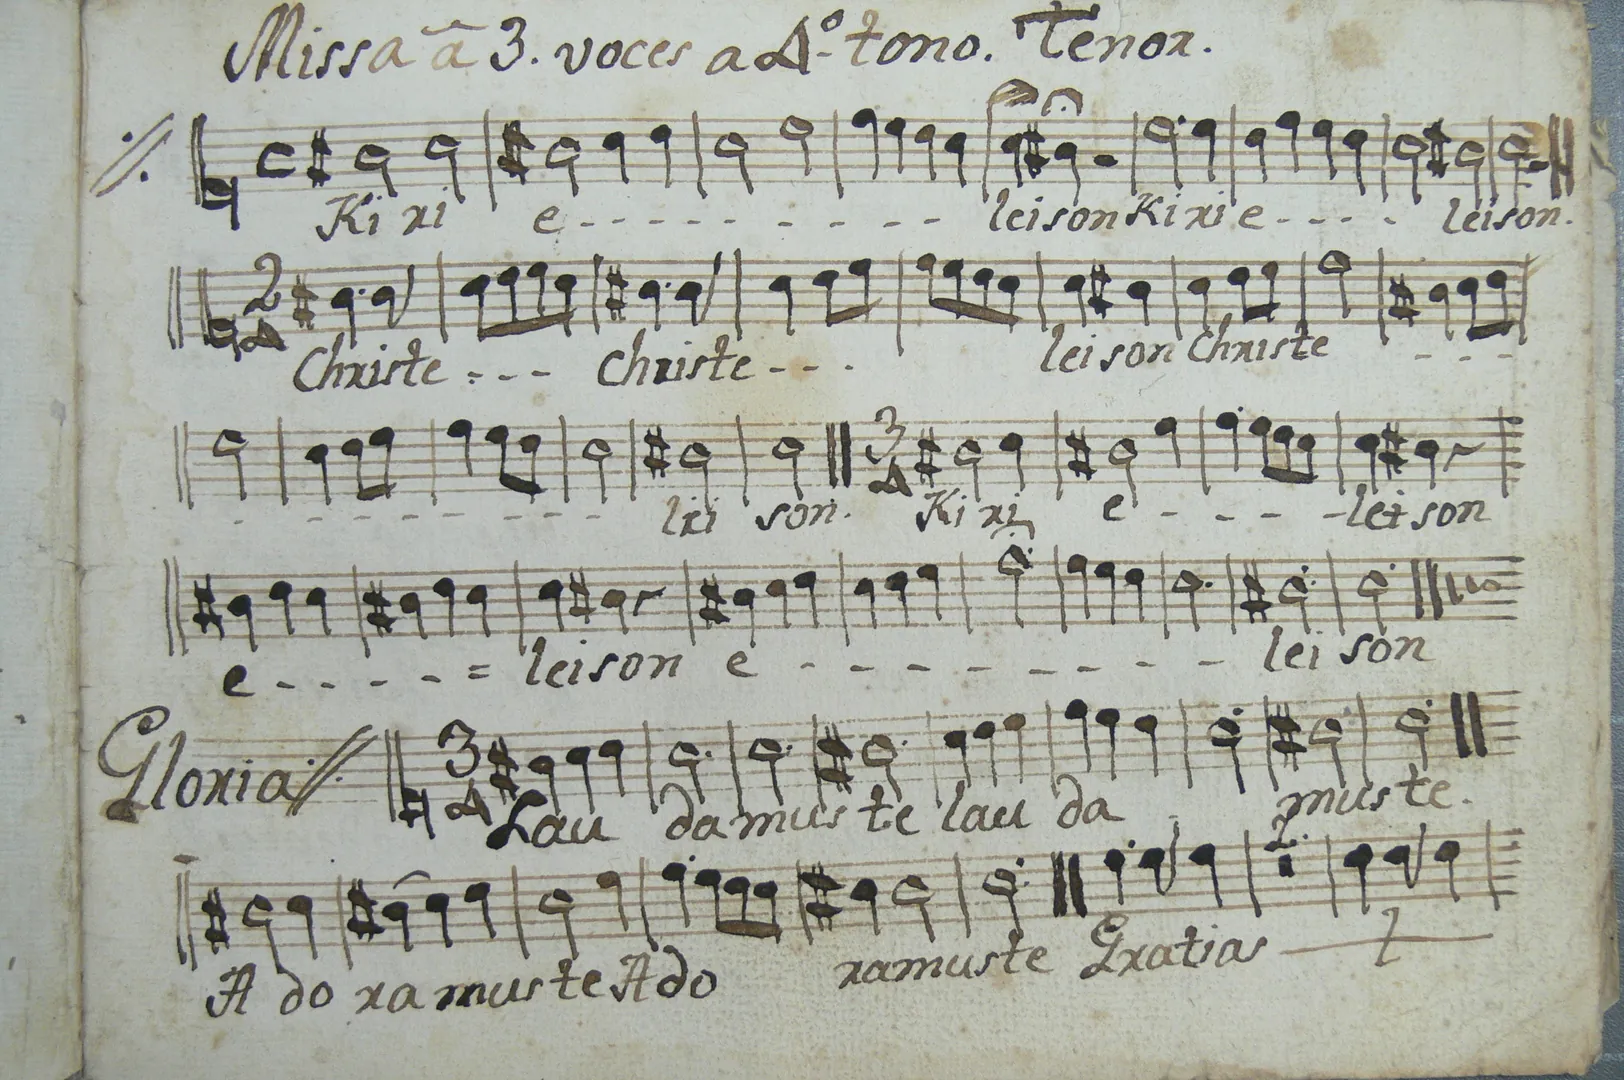 Missa â 3. voces a 4º tono. Tenor.
Ki ri e - - - - - - - - - leison Kirie - - - - leison.
2 4
Christe - - - Christe - - - leison Christe - - -
3 4
- - - - - - - - lei son. Ki ri e - - - - leison
e - - - - = leison e - - - - - - - - lei son
Gloria
3 4
Lau damus te lau da - muste.
A do ra muste Ado ramuste Gratias